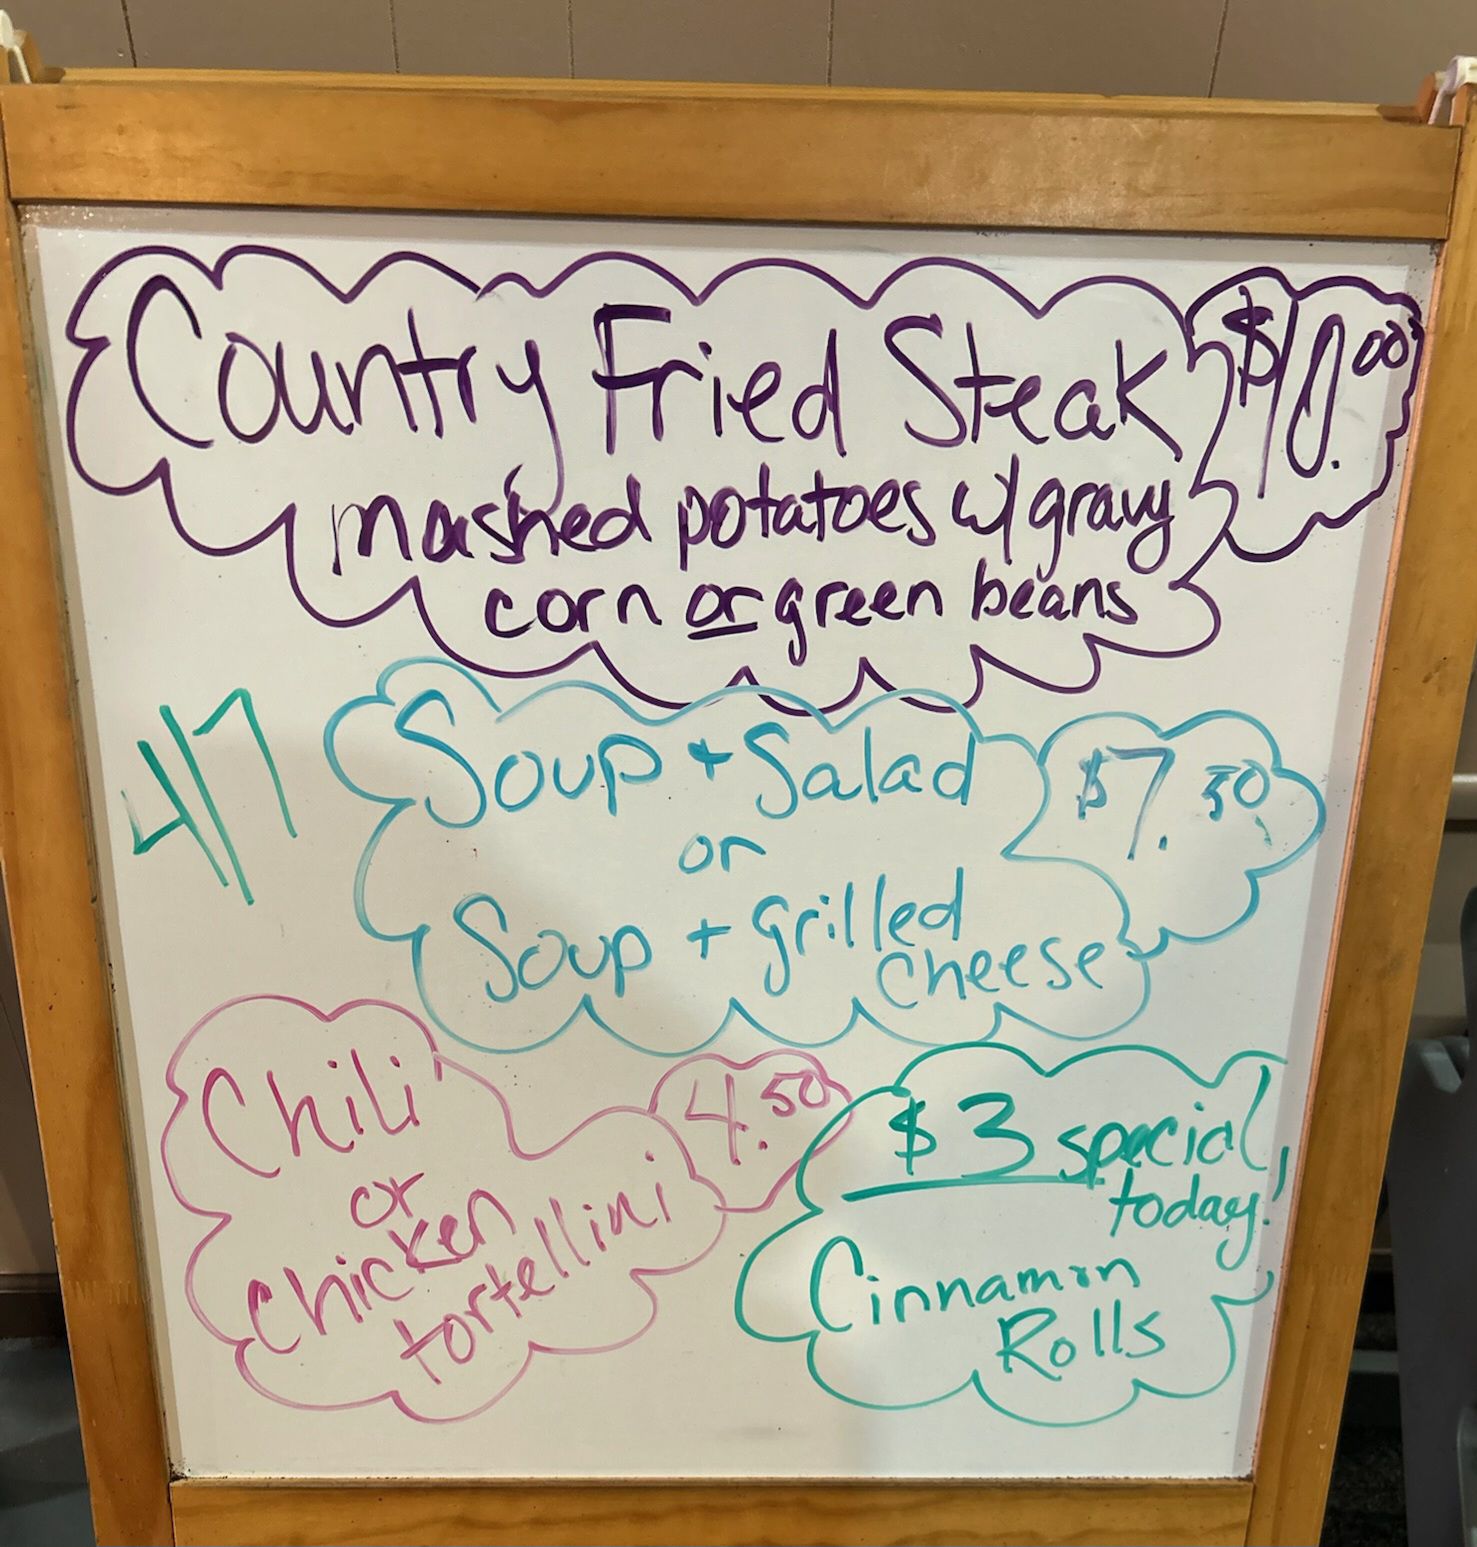 Country Fried Steak $10.00
mashed potatoes w/ gravy
corn or green beans
4/7
Soup + Salad $7.50
or
Soup + grilled
cheese
Chili 4.50
or
Chicken
tortellini
$3 special
today!
Cinnamon
Rolls